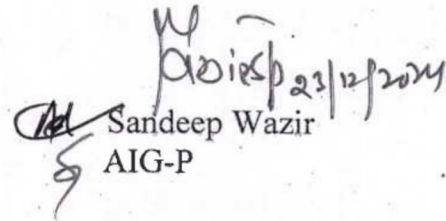 23/12/2024
Sandeep Wazir
AIG-P